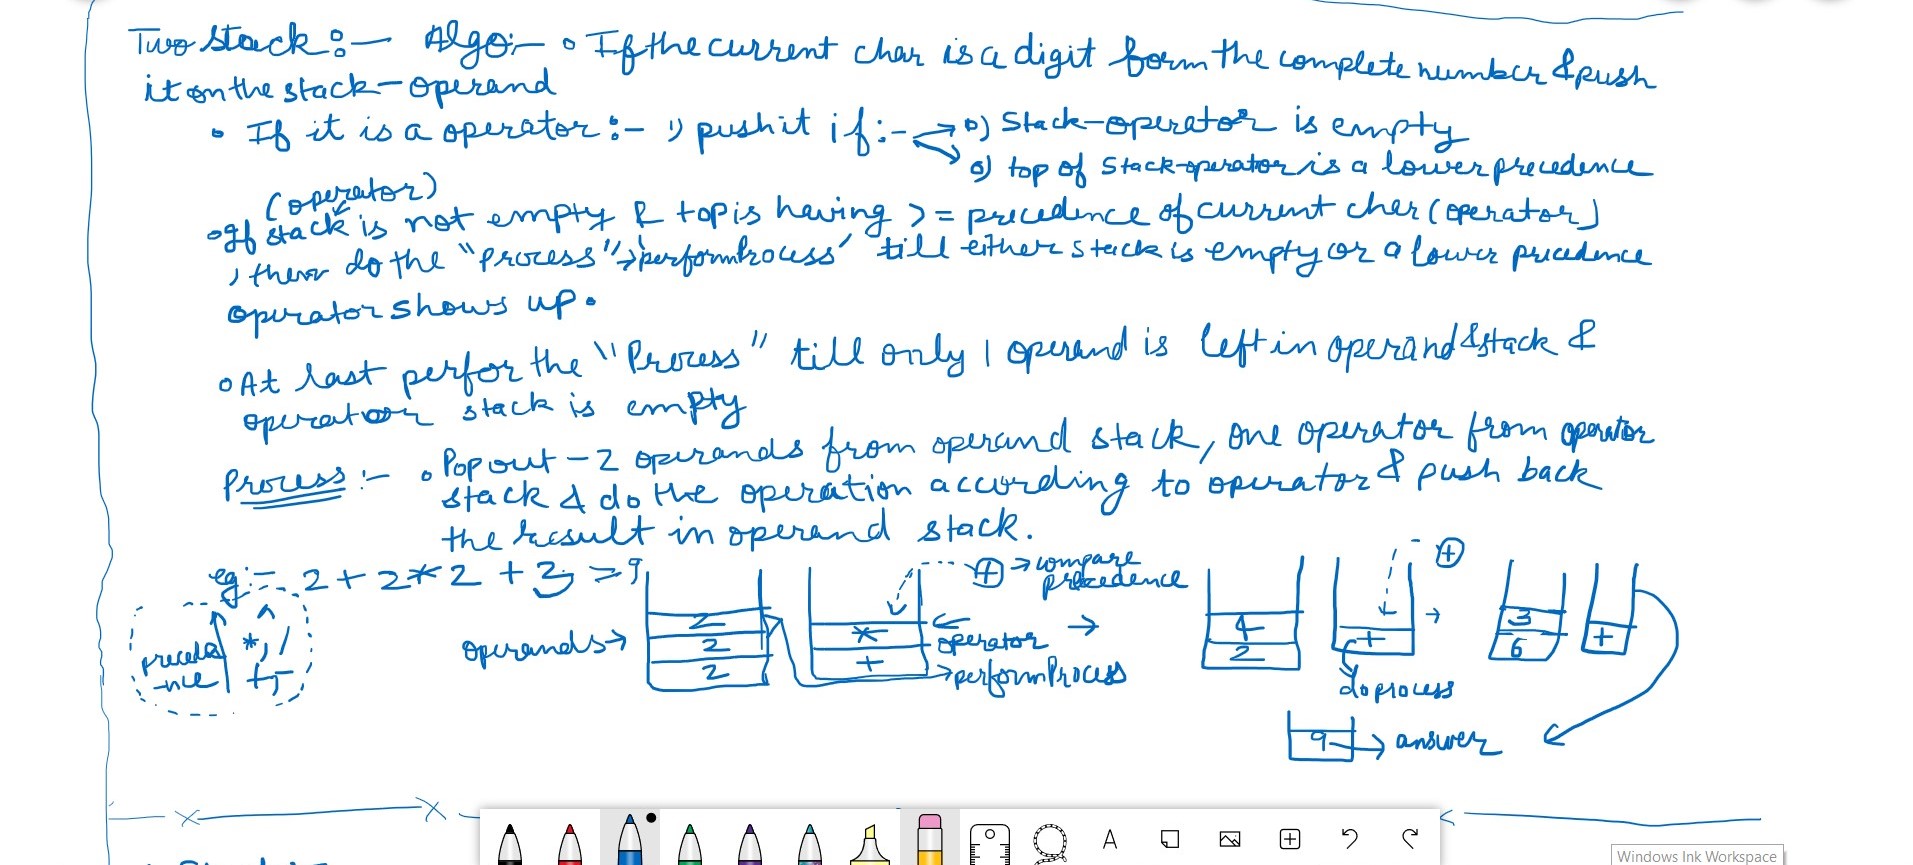 Two stack :- Algo:- • If the current char is a digit form the complete number & push
it on the stack-operand
• If it is a operator :- 1) push it if :- → 0) Stack-operator is empty
0) top of Stack-operator is a lower precedence
(operator)
• If stack is not empty & top is having >= precedence of current char (operator)
, then do the "Process" → 'performProcess' till either stack is empty or a lower precedence
operator shows up.
• At last perfor the "Process" till only 1 operand is left in operand stack &
operator stack is empty
Process :- • Pop out - 2 operands from operand stack, one operator from operator
stack & do the operation according to operator & push back
the result in operand stack.
eg:- 2 + 2 * 2 + 3 = 9
+ → compare
precedence
+
^
*, /
+, -
preceda
-nce
operands →
2
2
2
*
+
operator
→ performProcess
→
4
2
+
doprocess
→
3
6
+
9 → answer
A
Windows Ink Workspace